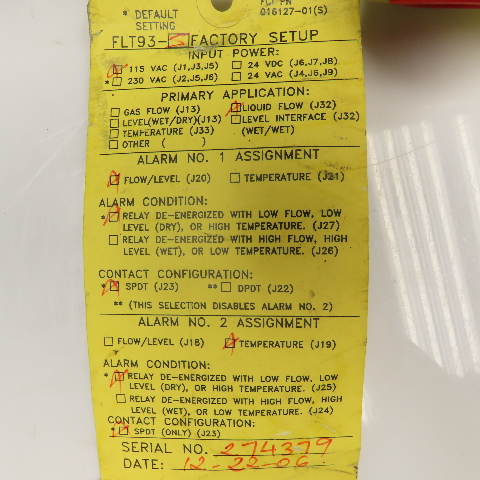 FCI PN
* DEFAULT 016127-01(S)
SETTING
FLT93-S FACTORY SETUP
INPUT POWER:
115 VAC (J1,J3,J5) 24 VDC (J6,J7,J8)
* 230 VAC (J2,J5,J6) 24 VAC (J4,J6,J9)
PRIMARY APPLICATION:
GAS FLOW (J13) LIQUID FLOW (J32)
LEVEL(WET/DRY)(J13) LEVEL INTERFACE (J32)
TEMPERATURE (J33) (WET/WET)
OTHER ( )
ALARM NO. 1 ASSIGNMENT
FLOW/LEVEL (J20) TEMPERATURE (J21)
ALARM CONDITION:
* RELAY DE-ENERGIZED WITH LOW FLOW, LOW
LEVEL (DRY), OR HIGH TEMPERATURE. (J27)
RELAY DE-ENERGIZED WITH HIGH FLOW, HIGH
LEVEL (WET), OR LOW TEMPERATURE. (J26)
CONTACT CONFIGURATION:
* SPDT (J23) ** DPDT (J22)
** (THIS SELECTION DISABLES ALARM NO. 2)
ALARM NO. 2 ASSIGNMENT
FLOW/LEVEL (J18) TEMPERATURE (J19)
ALARM CONDITION:
* RELAY DE-ENERGIZED WITH LOW FLOW, LOW
LEVEL (DRY), OR HIGH TEMPERATURE. (J25)
RELAY DE-ENERGIZED WITH HIGH FLOW, HIGH
LEVEL (WET), OR LOW TEMPERATURE. (J24)
CONTACT CONFIGURATION:
* SPDT (ONLY) (J23)
SERIAL NO. 274379
DATE: 12-22-06